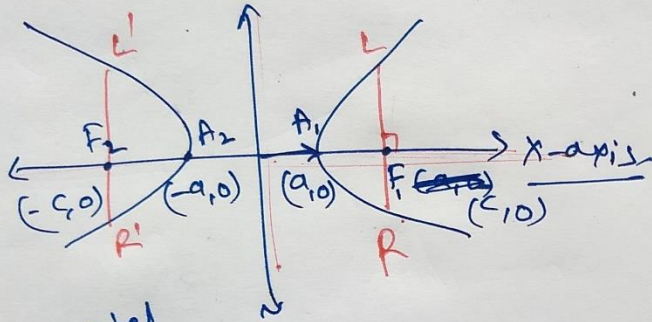 L' L
F2 A2 A1 X-axis
(-c,0) (-a,0) (a,0) F1 (c,0)
R' R